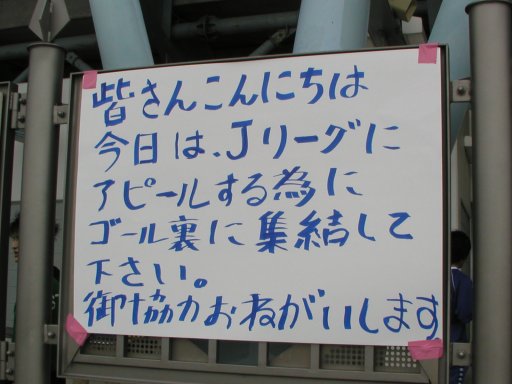 皆さんこんにちは
今日は、Jリーグに
アピールする為に
ゴール裏に集結して
下さい。
御協力おねがいします